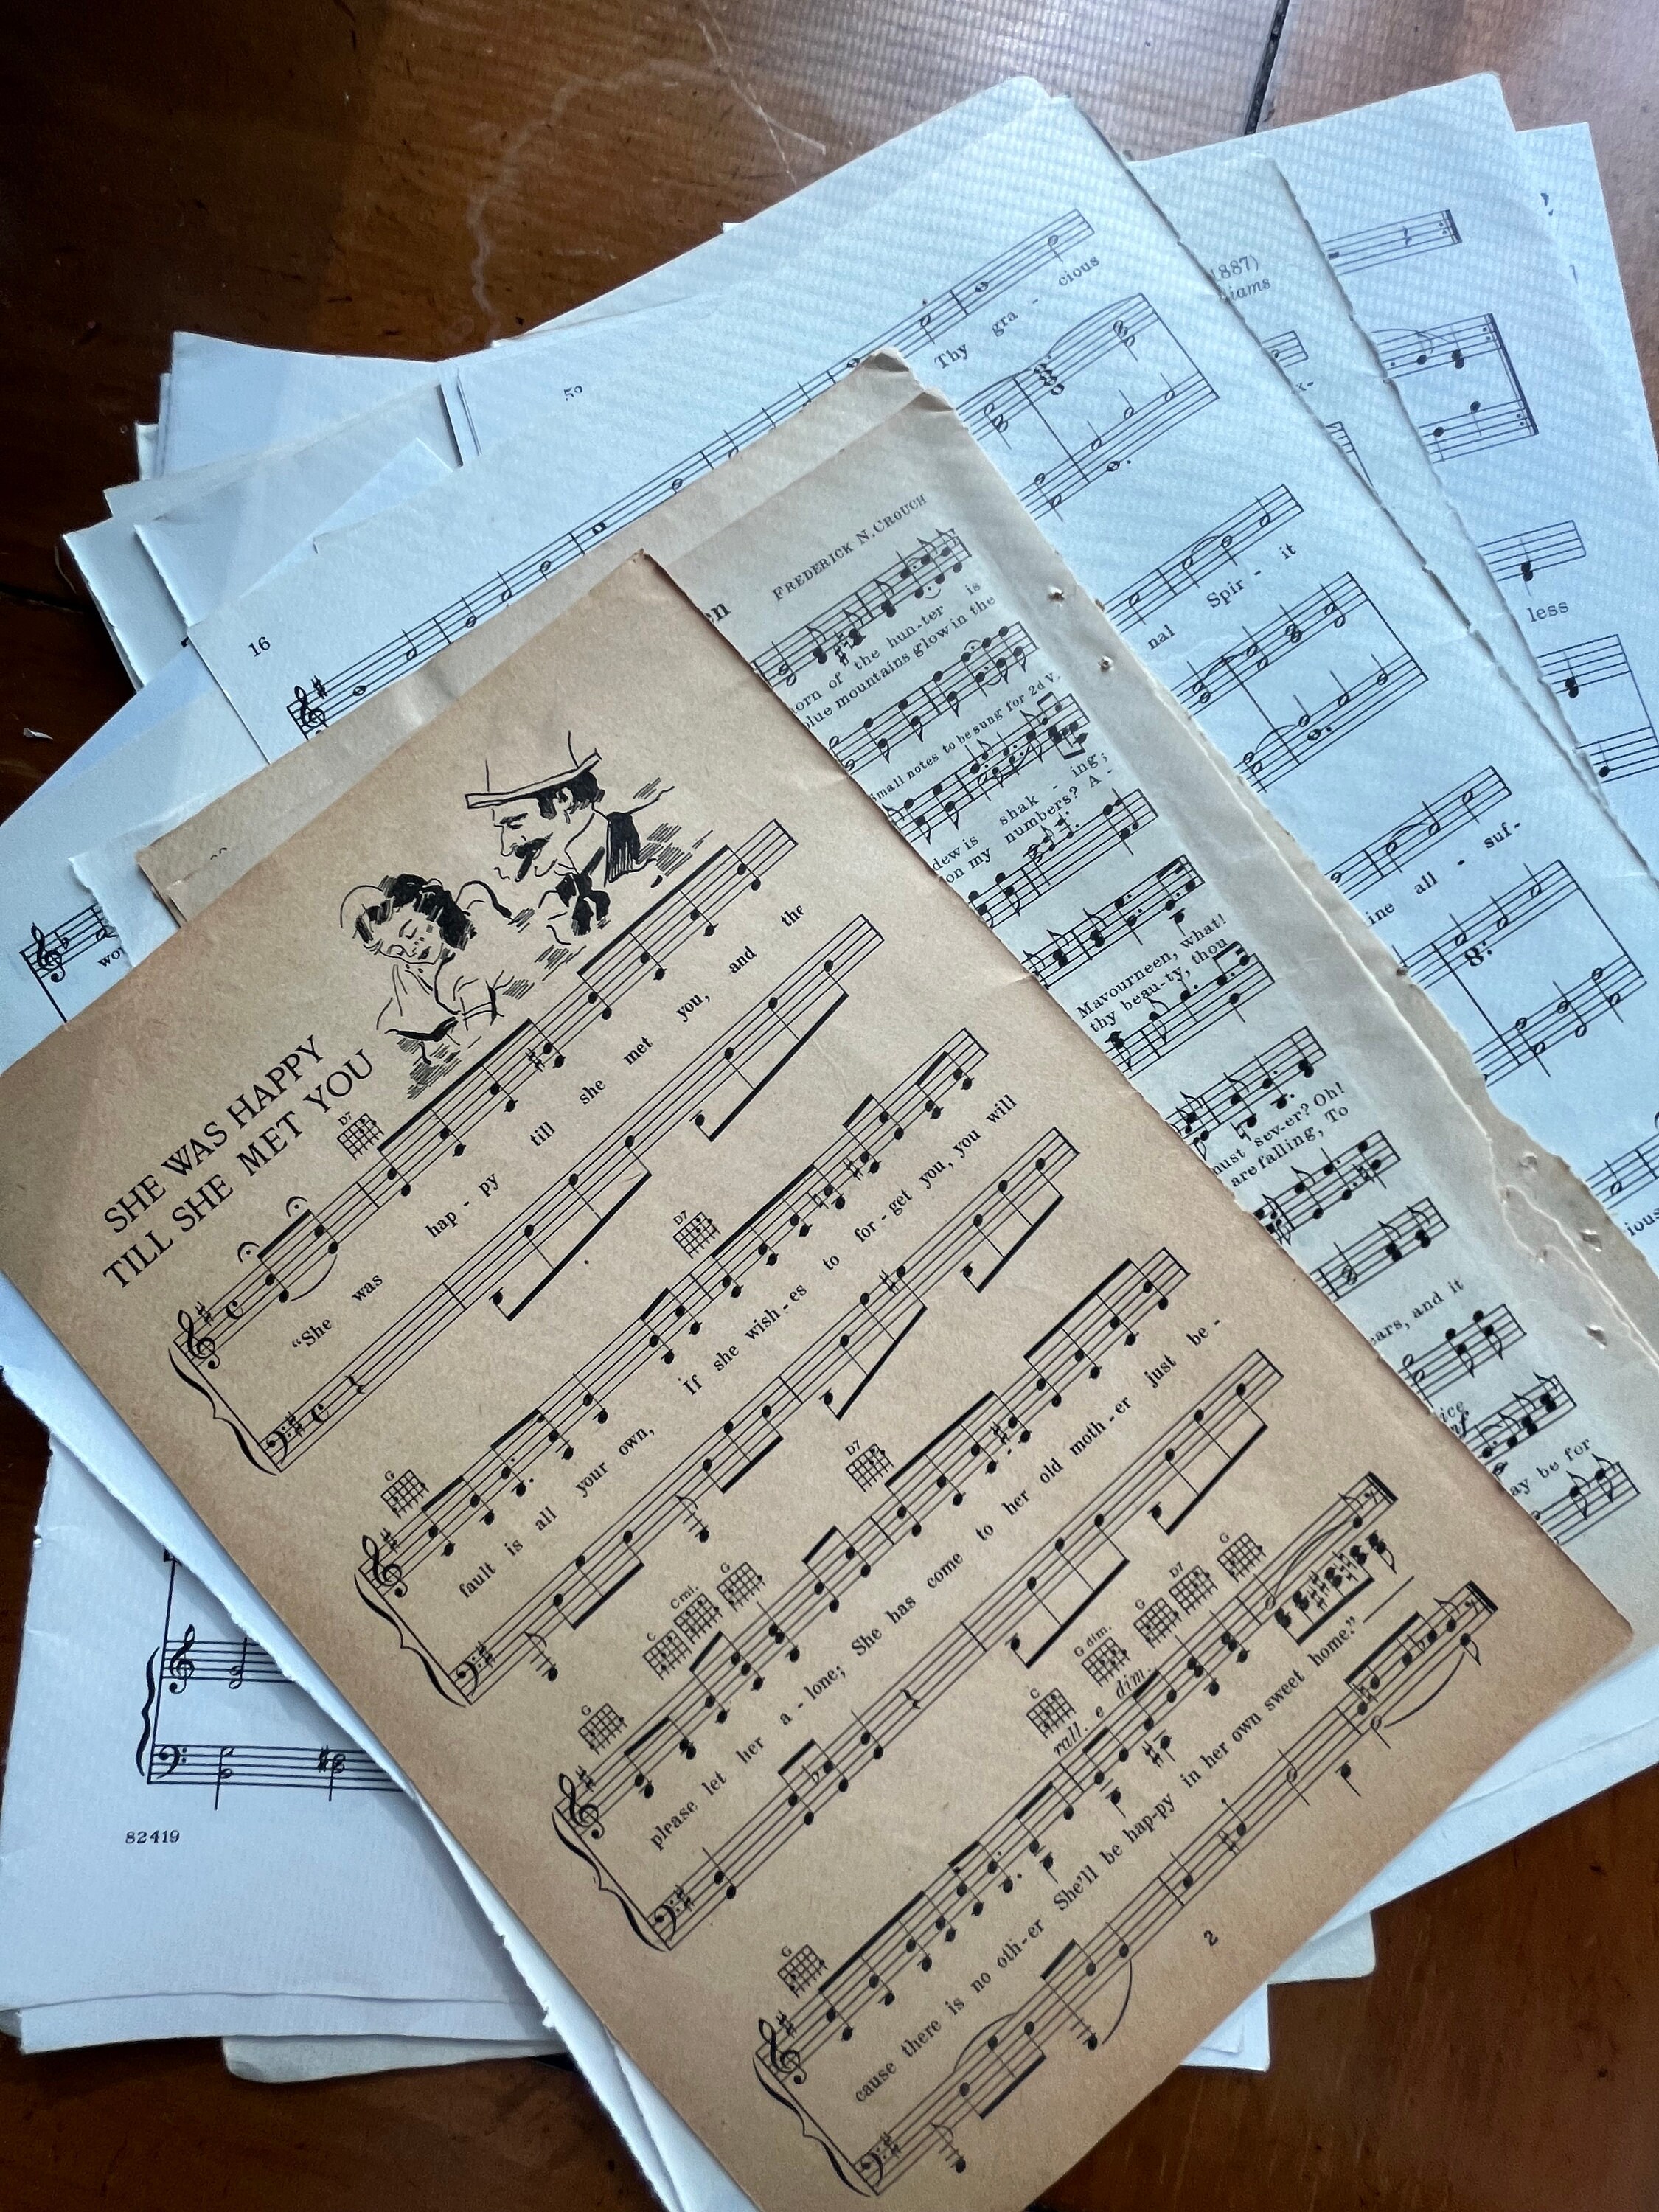 SHE WAS HAPPY
TILL SHE MET YOU
D7
“She was hap - py till she met you, and the
G D7
fault is all your own, If she wish - es to for - get you, you will
G C Cmi. G D7
please let her a - lone; She has come to her old moth - er just be -
G C G dim. G D7 G
rall. e dim.
cause there is no oth - er She'll be hap-py in her own sweet home.”
2
FREDERICK N. CROUCH
en
orn of the hun-ter is
blue mountains glow in the
Small notes to be sung for 2d V.
dew is shak - ing;
on my numbers? A -
Mavourneen, what!
thy beau-ty, thou
must sev-er? Oh!
are falling, To
ears, and it
ice
nf
ay be for
16
Thy gra - cious
nal Spir - it
ine all - suf-
ious
1887)
iams
x-
less
wo
82419